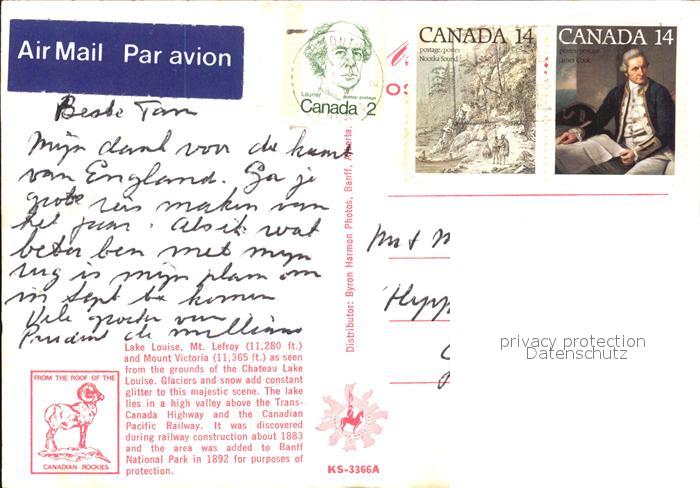 Air Mail Par avion
CANADA 14
postage/postes
Nootka Sound
CANADA 14
postes/postage
James Cook
Laurier postes-postage
Canada 2
Beste Tam
Mijn dank voor de kaart
van England. Ga je
grote reis maken van
het jaar. Als ik wat
beter ben met mijn
rug is mijn plan om
in Sept te komen
Vele groeten van
de
Mr & M
Lake Louise, Mt. Lefroy (11,280 ft.)
and Mount Victoria (11,365 ft.) as seen
from the grounds of the Chateau Lake
Louise. Glaciers and snow add constant
glitter to this majestic scene. The lake
lies in a high valley above the Trans-
Canada Highway and the Canadian
Pacific Railway. It was discovered
during railway construction about 1883
and the area was added to Banff
National Park in 1892 for purposes of
protection.
FROM THE ROOF OF THE
CANADIAN ROCKIES
Distributor: Byron Harmon Photos, Banff, Alberta.
KS-3366A
privacy protection
Datenschutz